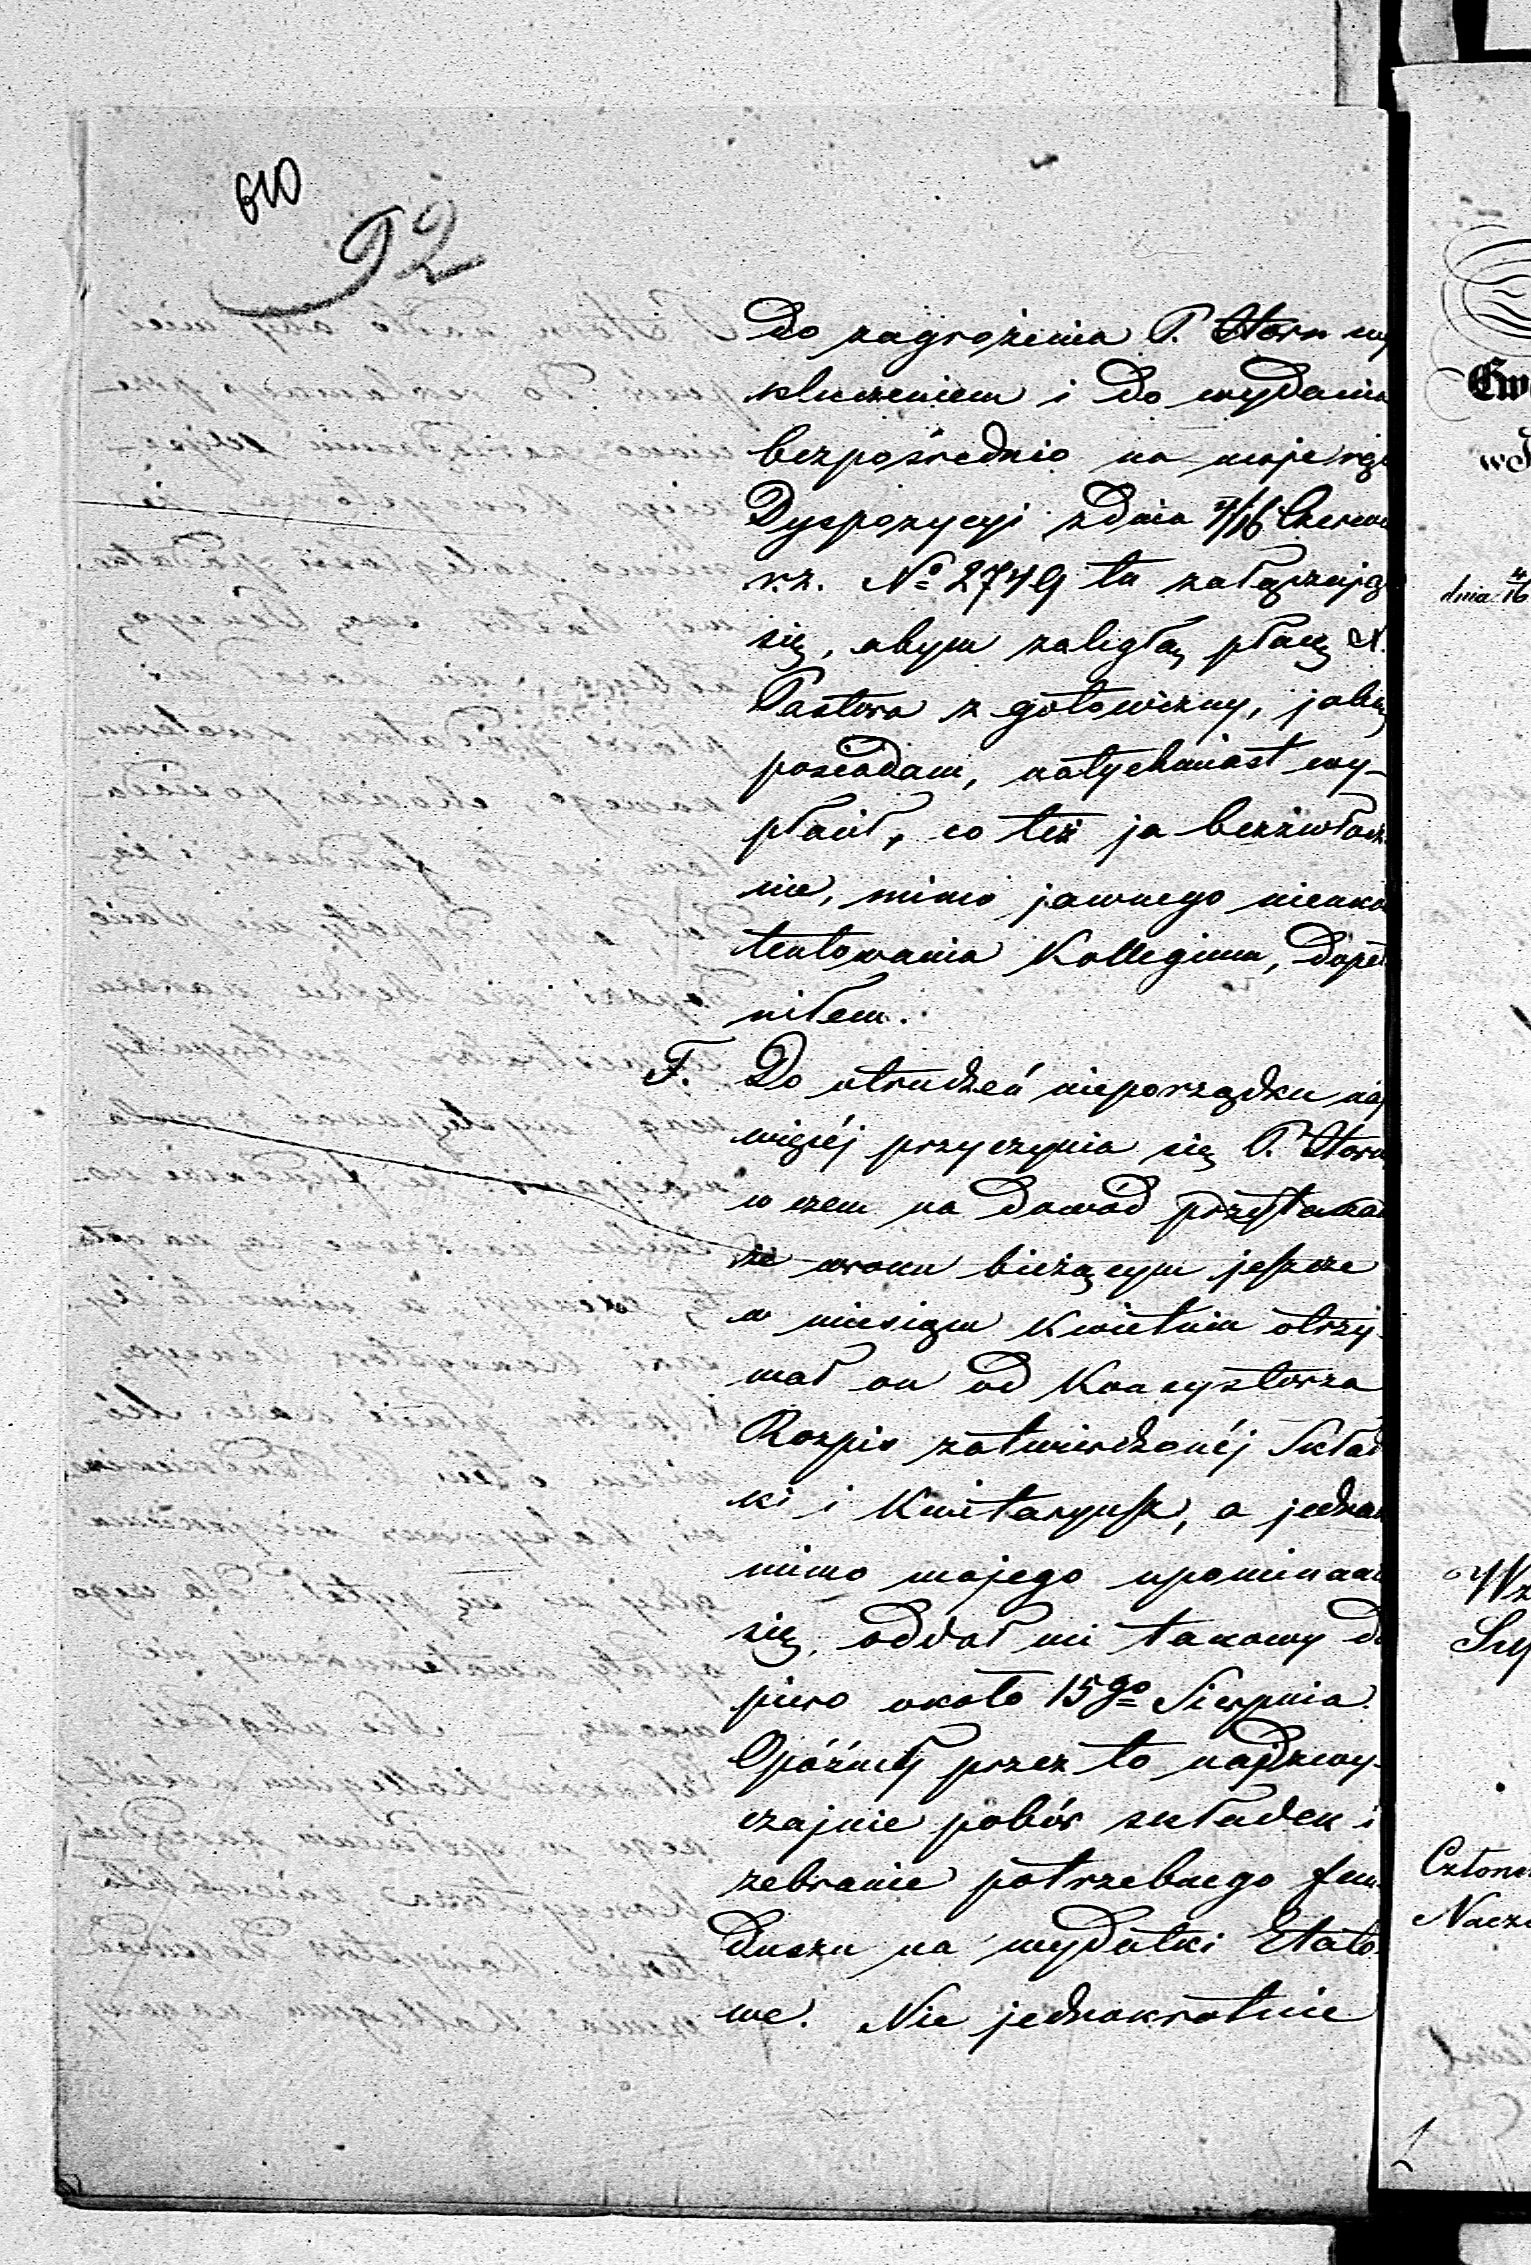 610
92
Do zagrożenia P. Horn wy
kluczeniem i do wydania
bezpośrednio na moje ręc
Dyspozycyi z dnia 4/16 Czerwc
r.z. No 2749 tu załączając
się, abym zaległą płacę X.
Pastora z gotowizny, jaką
posiadam, natychmiast wy-
płacił, co też ja bezzwłocz
nie, mimo jawnego nieuko
tentowania Kollegium, dopeł
niłem.
F. Do utrudzeń nieporządku naj
więcéj przyczynia się P. Horn
w czem na dowód przytaczam
że w roku bieżącym jeszcze
w miesiącu Kwietniu otrzy-
mał on od Konsystorza
Rozpis zatwierdzonéj Skład
ki i Kwitaryusz, a jednak
mimo mojego upominani
się, oddał mi takowy do
piero około 15go Sierpnia.
Opóźnił przez to nadzwy-
czajnie pobór składek i
zebranie potrzebnego fun-
duszu na wydatki Etato-
we. Nie jednokrotnie
dnia 4/16
Członk
Nacz